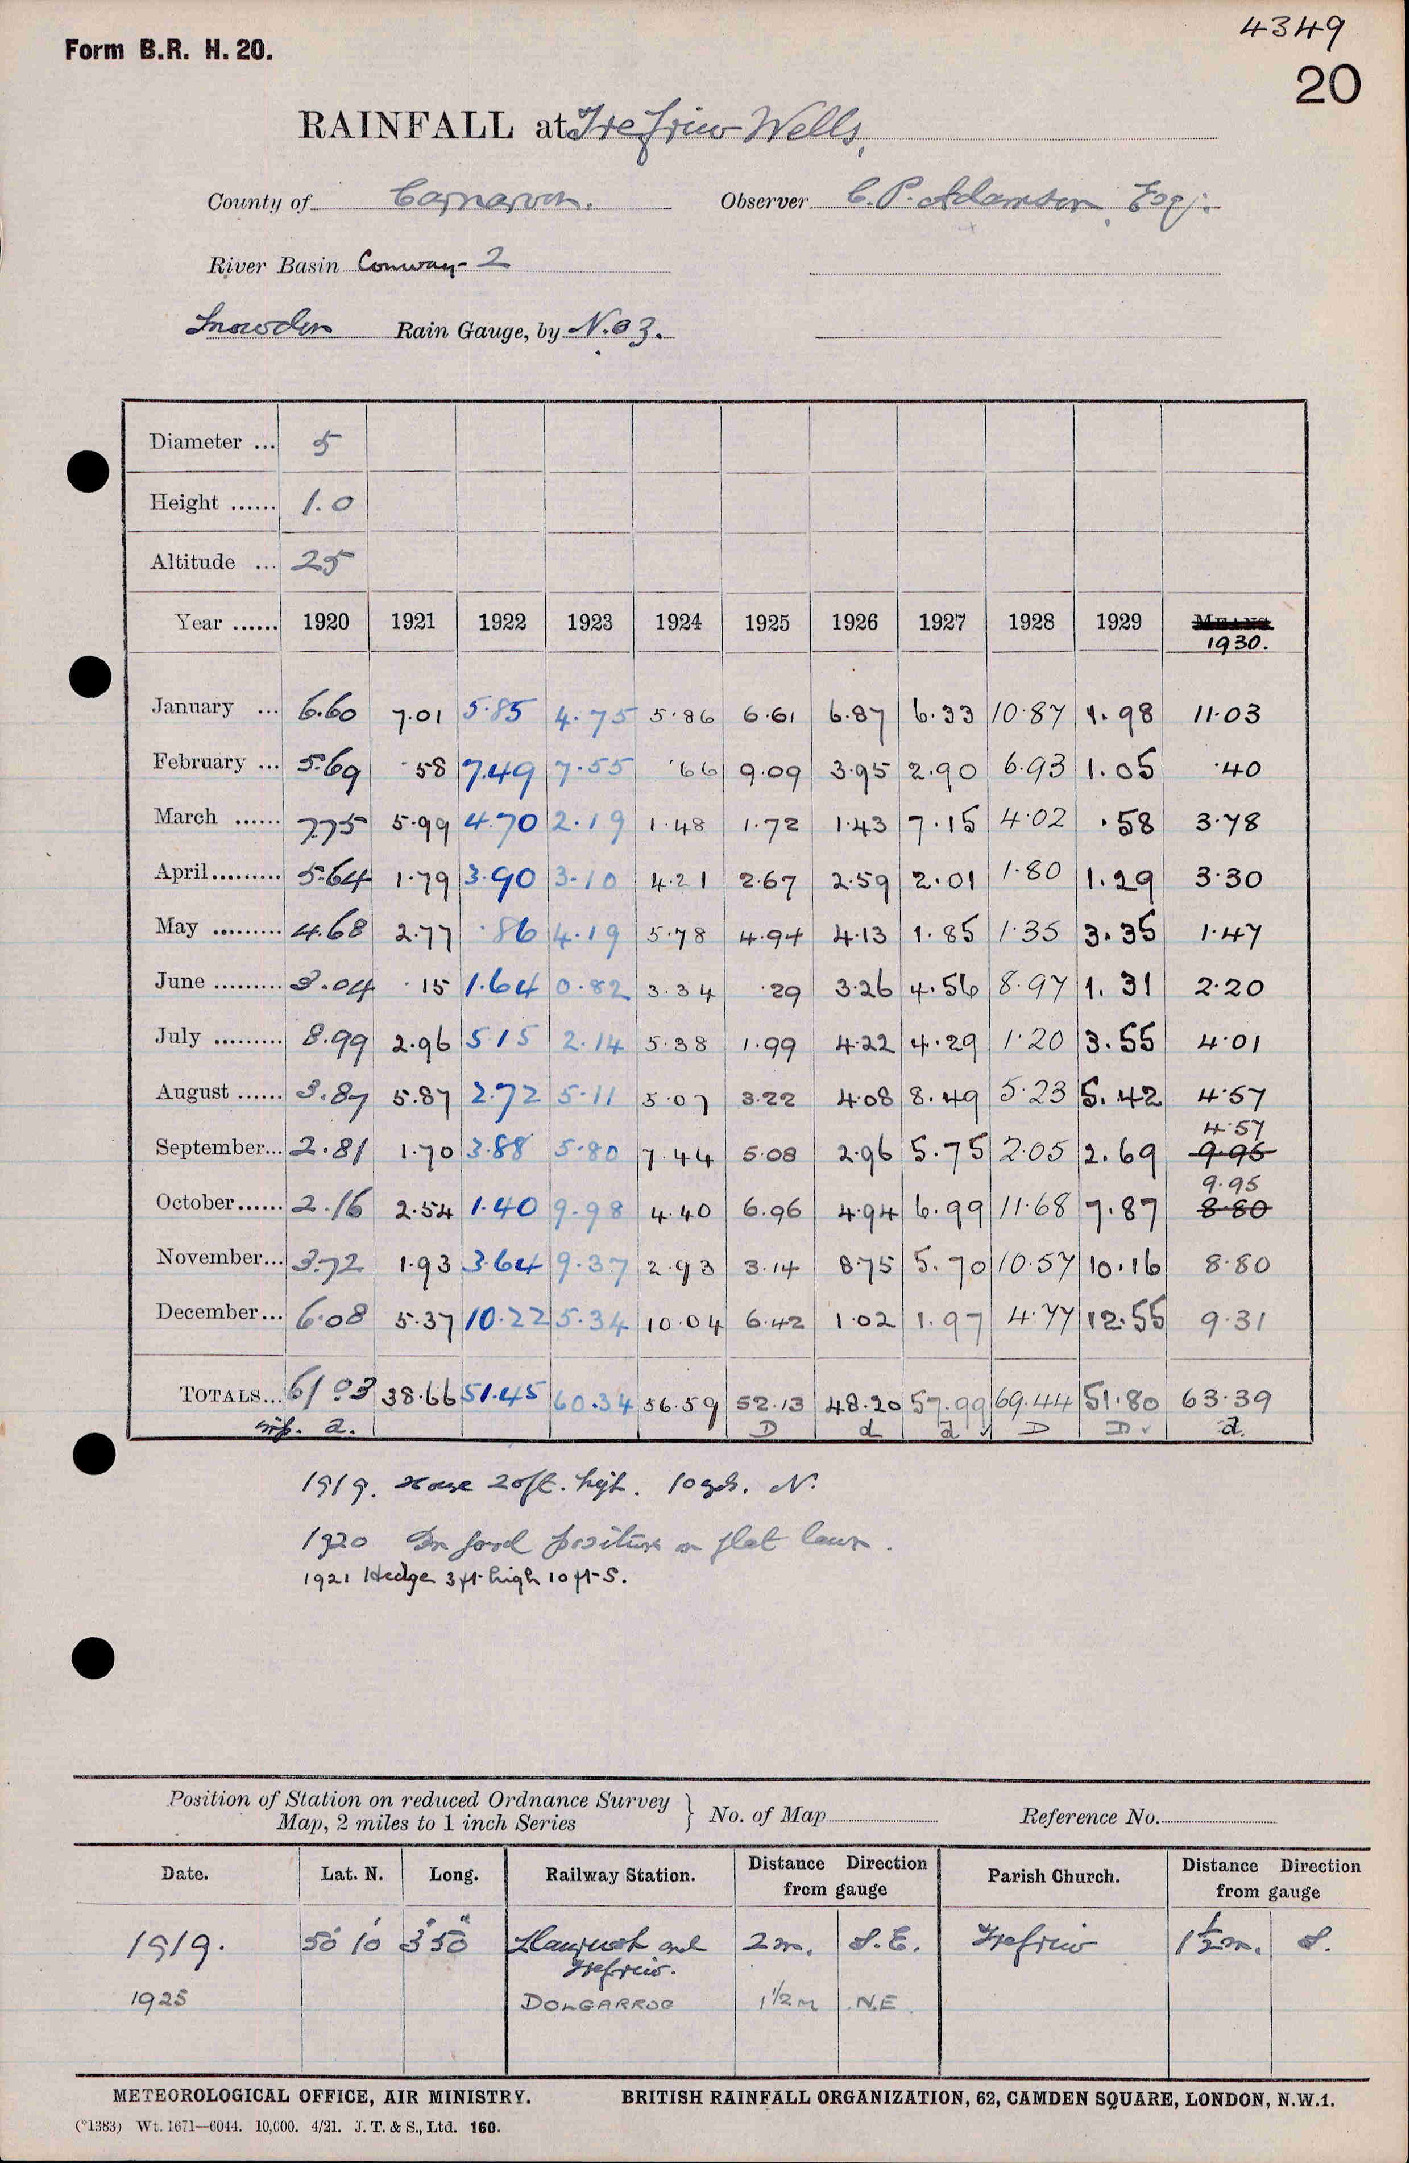 4349
Form B.R. H. 20.
20
RAINFALL at Trefriw Wells,
County of Carnarvon. Observer C. P. Adamson, Esq.
River Basin Conway - 2
Snowdon Rain Gauge, by N. 3.
Diameter ... 5
Height ...... 1.0
Altitude ... 25
Year ...... 1920 1921 1922 1923 1924 1925 1926 1927 1928 1929 MEANS
1930.
January ... 6.60 7.01 5.85 4.75 5.86 6.61 6.87 6.33 10.87 1.98 11.03
February ... 5.69 .58 7.49 7.55 .66 9.09 3.95 2.90 6.93 1.05 .40
March ...... 7.75 5.99 4.70 2.19 1.48 1.72 1.43 7.15 4.02 .58 3.78
April......... 5.64 1.79 3.90 3.10 4.21 2.67 2.59 2.01 1.80 1.29 3.30
May ......... 4.68 2.77 .86 4.19 5.78 4.94 4.13 1.85 1.35 3.35 1.47
June ......... 3.04 .15 1.64 0.82 3.34 .29 3.26 4.56 8.97 1.31 2.20
July ......... 8.99 2.96 5.15 2.14 5.38 1.99 4.22 4.29 1.20 3.55 4.01
August ...... 3.87 5.87 2.72 5.11 5.07 3.22 4.08 8.49 5.23 5.42 4.57
4.57
September... 2.81 1.70 3.88 5.80 7.44 5.08 2.96 5.75 2.05 2.69 9.95
9.95
October...... 2.16 2.54 1.40 9.98 4.40 6.96 4.94 6.99 11.68 7.87 8.80
November... 3.72 1.93 3.64 9.37 2.93 3.14 8.75 5.70 10.57 10.16 8.80
December... 6.08 5.37 10.22 5.34 10.04 6.42 1.02 1.97 4.77 12.55 9.31
TOTALS... 61.03 38.66 51.45 60.34 56.59 52.13 48.20 57.99 69.44 51.80 63.39
a. D d d D D d
1919. House 20ft. high. 10 yds. N.
1920 In good position on flat lawn.
1921 Hedge 3 ft high 10 ft S.
Position of Station on reduced Ordnance Survey
Map, 2 miles to 1 inch Series } No. of Map Reference No.
Date. Lat. N. Long. Railway Station. Distance Direction from gauge Parish Church. Distance Direction from gauge
1919. 50° 10' 3° 50" Llanrwst and 2 m. S.E. Trefriw 1½ m. S.
Trefriw.
1925 DOLGARROG 1½ M N.E.
METEOROLOGICAL OFFICE, AIR MINISTRY. BRITISH RAINFALL ORGANIZATION, 62, CAMDEN SQUARE, LONDON, N.W.1.
(*1383) Wt. 1671—6044. 10,000. 4/21. J. T. & S., Ltd. 160.